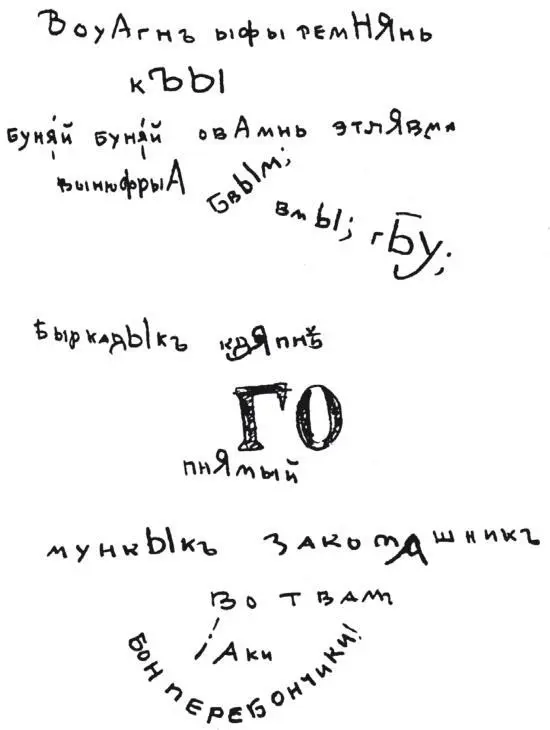 ВоуАгнъ ыфы темНЯНЬ
кЪЫ
буняй буняй овАмнь этлЯвма
вынюфрыА
БвЫм;
вмЫ; гБУ;
БыркадЫкъ кдЯпнѣ
ГО
пнямый
мункЫкъ закомАшникъ
вотвам
іАки
БОН ПЕРЕБОНЧИКИ!